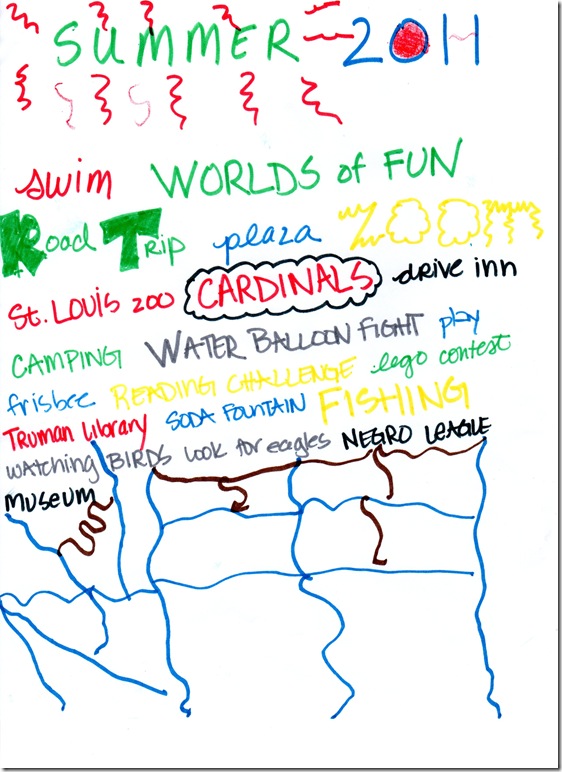 SUMMER 2011
swim WORLDS of FUN
Road Trip plaza ZOOM
St. LOUIS ZOO CARDINALS drive inn
CAMPING WATER BALLOON FIGHT play
frisbee READING CHALLENGE lego contest
TRUMAN Library SODA FOUNTAIN FISHING
watching BIRDS look for eagles NEGRO LEAGUE
MUSEUM